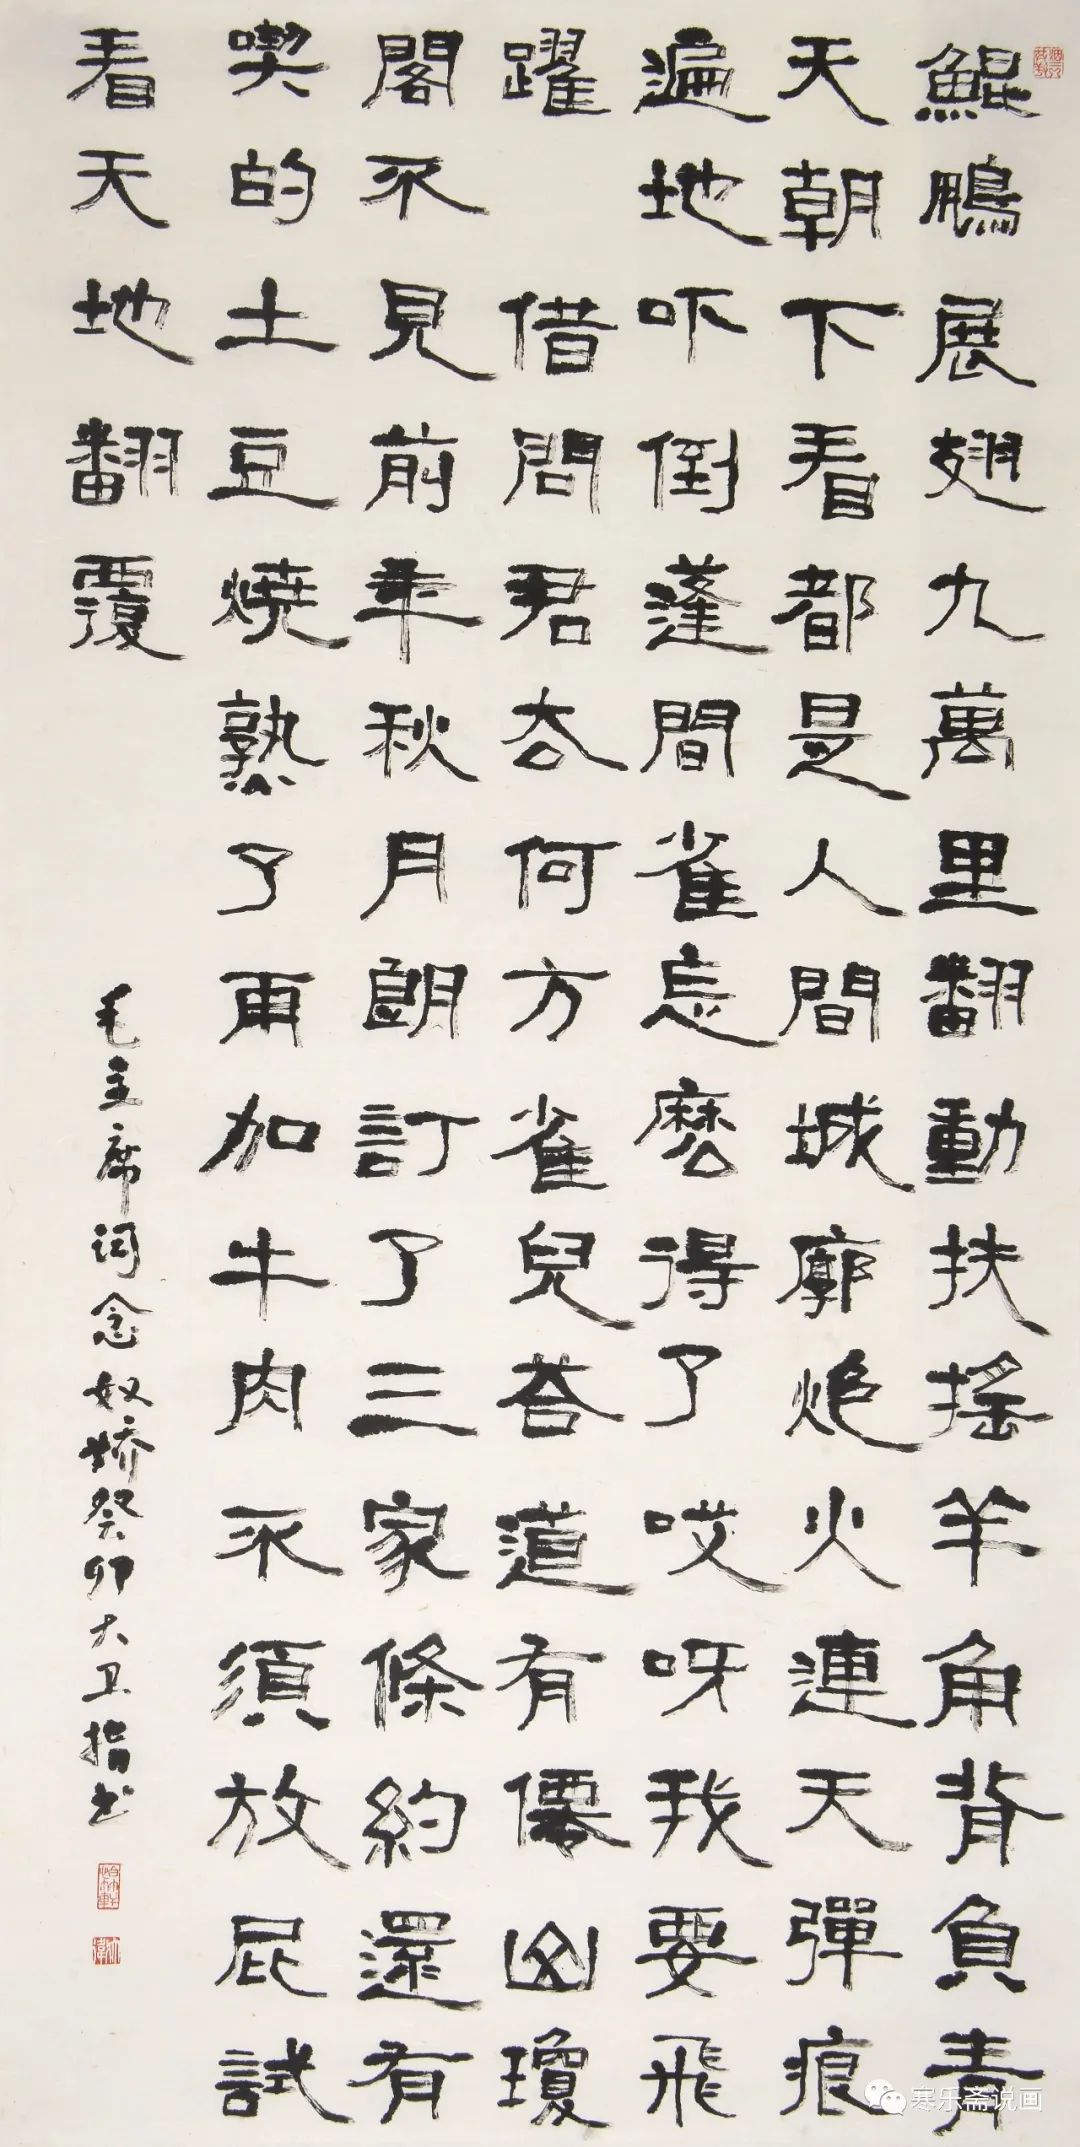 鯤鵬展翅九萬里翻動扶搖羊角背負青
天朝下看都是人間城廓炮火連天彈痕
遍地吓倒蓬間雀怎麽得了哎呀我要飛
躍 借問君去何方雀兒荅道有僊山瓊
閣不見前年秋月朗訂了三家條約還有
喫的土豆燒熟了再加牛肉不須放屁試
看天地翻覆
毛主席词念奴娇癸卯大卫指书
寒乐斋说画